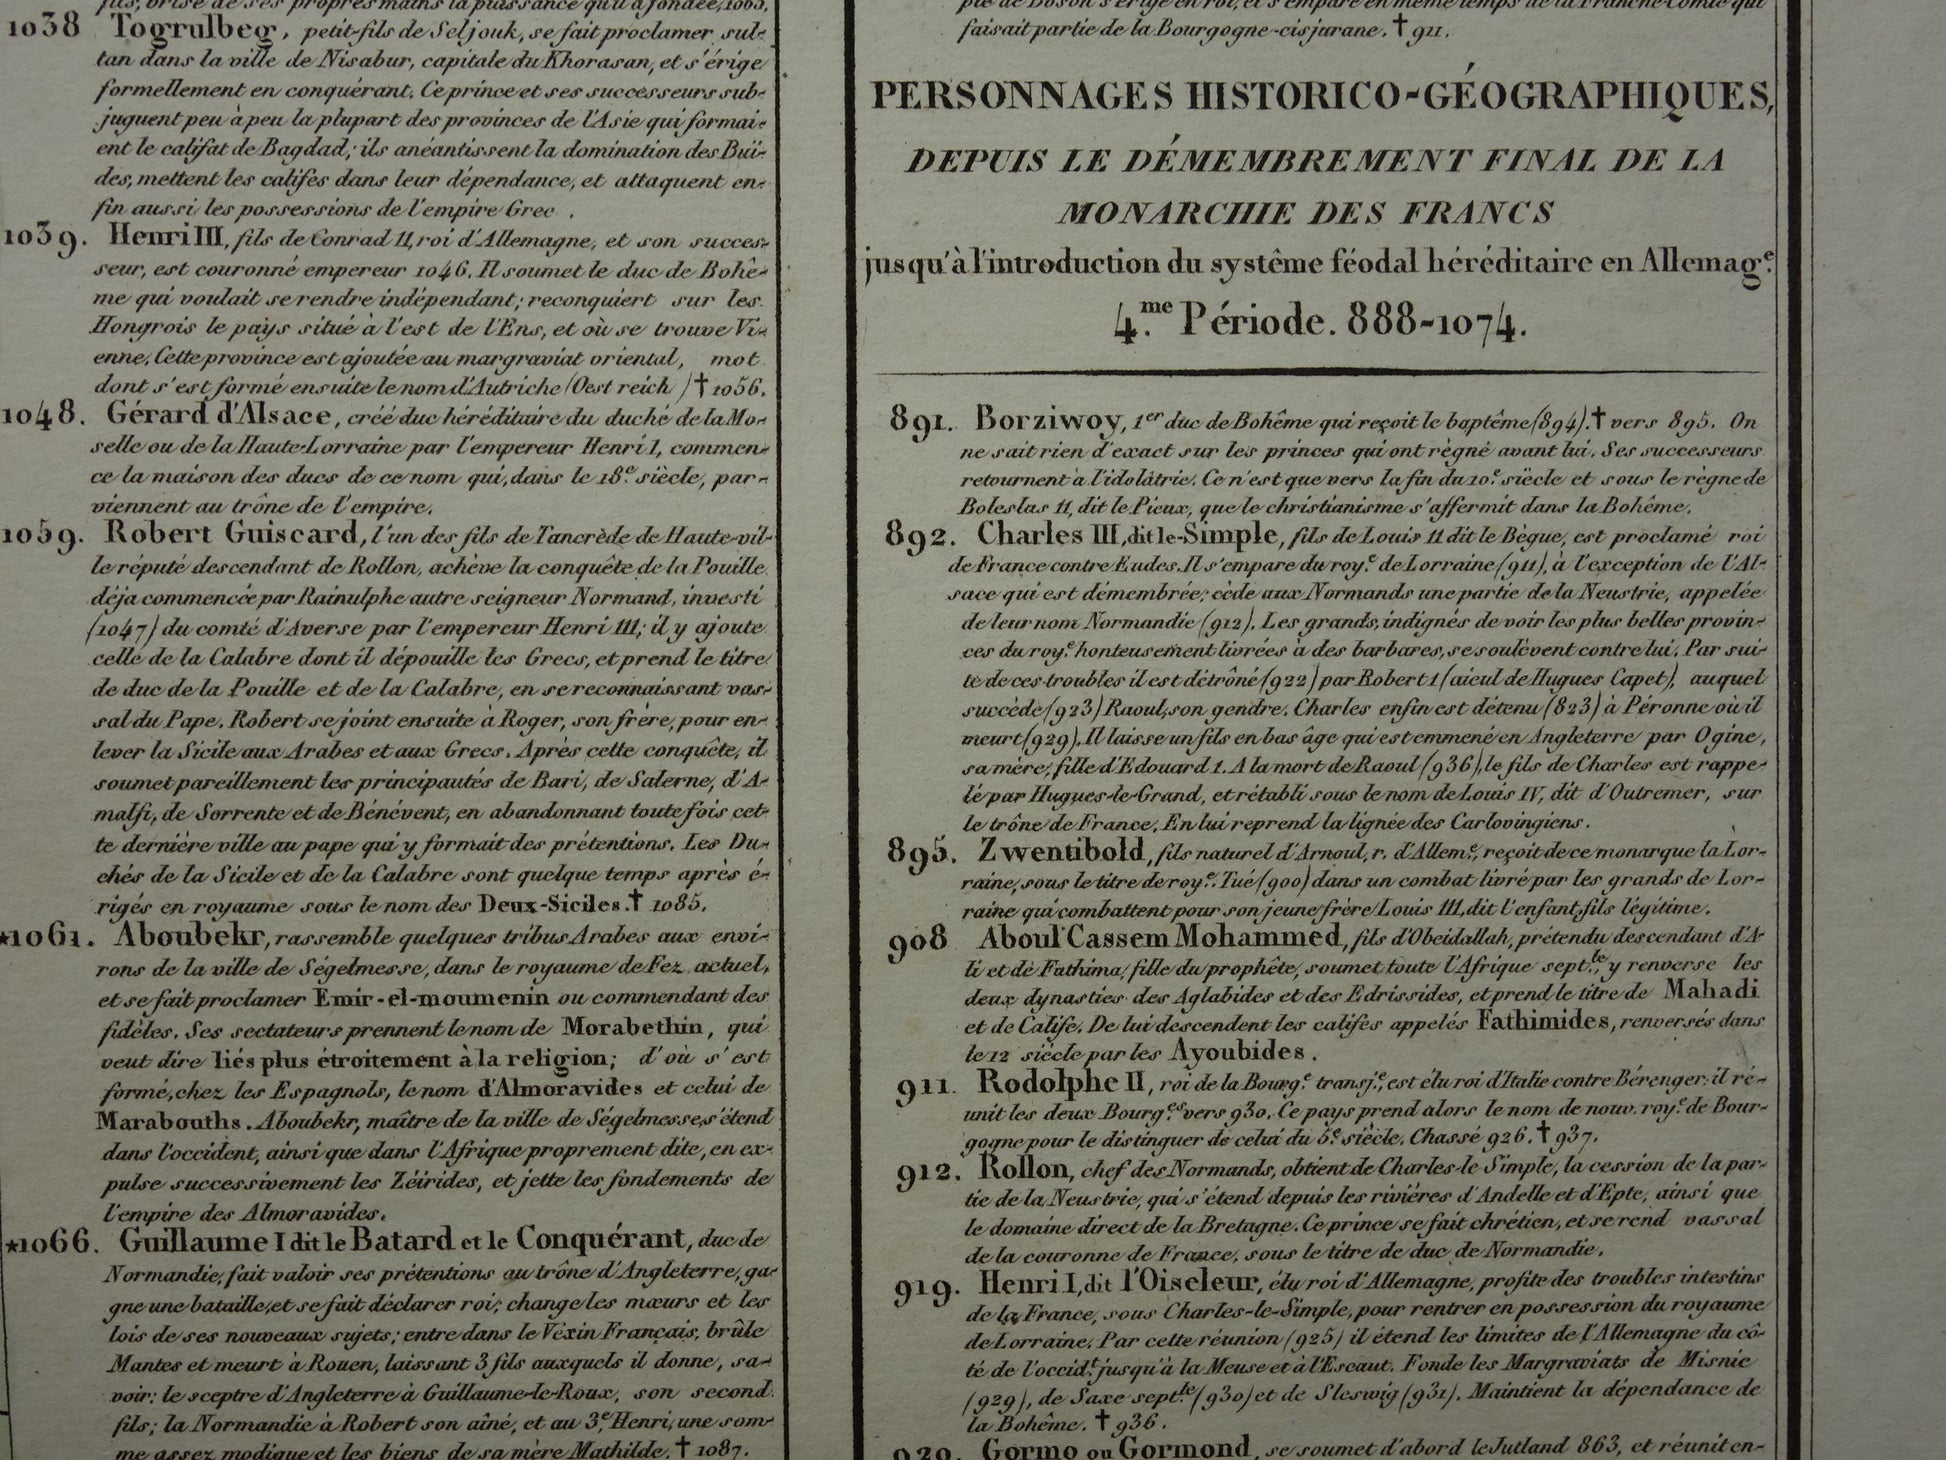 fils, brise de ses propres mains la puissance qu'il a fondée, 1063.
1038 Togrulbeg, petit-fils de Seljouk, se fait proclamer sul-
tan dans la ville de Nisabur, capitale du Khorasan, et s'érige
formellement en conquérant. Ce prince et ses successeurs sub-
juguent peu à peu la plupart des provinces de l'Asie qui formai-
ent le califat de Bagdad; ils anéantissent la domination des Buï-
des, mettent les califes dans leur dépendance, et attaquent en-
fin aussi les possessions de l'empire Grec .
1039. Henri III, fils de Conrad II, roi d'Allemagne, et son succes-
seur, est couronné empereur 1046. Il soumet le duc de Bohê-
me qui voulait se rendre indépendant; reconquiert sur les
Hongrois le pays situé à l'est de l'Ens, et où se trouve Vi-
enne. Cette province est ajoutée au margraviat oriental, mot
dont s'est formé ensuite le nom d'Autriche (Oest reich ) † 1056.
1048. Gérard d'Alsace, créé duc héréditaire du duché de la Mo-
selle ou de la Haute-Lorraine par l'empereur Henri I, commen-
ce la maison des ducs de ce nom qui, dans le 18e. siècle, par-
viennent au trône de l'empire.
1059. Robert Guiscard, l'un des fils de Tancrède de Haute-vil-
le réputé descendant de Rollon, achève la conquête de la Pouille
déja commencée par Rainulphe autre seigneur Normand, investi
(1047) du comté d'Averse par l'empereur Henri III; il y ajoute
celle de la Calabre dont il dépouille les Grecs, et prend le titre
de duc de la Pouille et de la Calabre, en se reconnaissant vas-
sal du Pape. Robert se joint ensuite à Roger, son frère, pour en-
lever la Sicile aux Arabes et aux Grecs. Après cette conquête, il
soumet pareillement les principautés de Bari, de Salerne, d'A-
malfi, de Sorrente et de Bénévent, en abandonnant toute fois cet-
te dernière ville au pape qui y formait des prétentions. Les Du-
chés de la Sicile et de la Calabre sont quelque temps après é-
rigés en royaume sous le nom des Deux-Siciles. † 1085.
★1061. Aboubekr, rassemble quelques tribus Arabes aux envi-
rons de la ville de Ségelmesse, dans le royaume de Fez actuel,
et se fait proclamer Emir-el-moumenin ou commendant des
fidèles. Ses sectateurs prennent le nom de Morabethin, qui
veut dire liés plus étroitement à la religion; d'où s'est
formé, chez les Espagnols, le nom d'Almoravides et celui de
Marabouths. Aboubekr, maître de la ville de Ségelmesse, s'étend
dans l'occident, ainsi que dans l'Afrique proprement dite, en ex-
pulse successivement les Zéïrides, et jette les fondements de
l'empire des Almoravides.
★1066. Guillaume I dit le Batard et le Conquérant, duc de
Normandie, fait valoir ses prétentions au trône d'Angleterre, ga-
gne une bataille, et se fait déclarer roi; change les mœurs et les
lois de ses nouveaux sujets; entre dans le Véxin Français, brûle
Mantes et meurt à Rouen, laissant 3 fils auxquels il donne, sa-
voir: le sceptre d'Angleterre à Guillaume-le-Roux, son second
fils; la Normandie à Robert son aîné, et au 3e, Henri, une som-
me assez modique et les biens de sa mère Mathilde. † 1087.
pie de Boson s'érige en roi, et s'empare en même temps de la Franche-Comté qui
faisait partie de la Bourgogne-cisjurane. † 911.
PERSONNAGES HISTORICO-GÉOGRAPHIQUES,
DEPUIS LE DÉMEMBREMENT FINAL DE LA
MONARCHIE DES FRANCS
jusqu'à l'introduction du systême féodal héréditaire en Allemage.
4.me Période. 888-1074.
891. Borziwoy, 1er duc de Bohême qui reçoit le baptême (894). † vers 895. On
ne sait rien d'exact sur les princes qui ont règné avant lui. Ses successeurs
retournent à l'idolâtrie. Ce n'est que vers la fin du 10e. siècle et sous le règne de
Boleslas II, dit le Pieux, que le christianisme s'affermit dans la Bohême.
892. Charles III, dit-le-Simple, fils de Louis II dit le Bègue, est proclamé roi
de France contre Eudes. Il s'empare du roye. de Lorraine (911), à l'exception de l'Al-
sace qui est démembrée; cède aux Normands une partie de la Neustrie, appelée
de leur nom Normandie (912). Les grands, indignés de voir les plus belles provin-
ces du roye. honteusement livrées à des barbares, se soulèvent contre lui. Par sui-
te de ces troubles il est détrôné (922) par Robert I (aieul de Hugues Capet), auquel
succède (923) Raoul, son gendre. Charles enfin est détenu (823) à Péronne où il
meurt (929). Il laisse un fils en bas âge qui est emmené en Angleterre par Ogine,
sa mère; fille d'Edouard I. A la mort de Raoul (936), le fils de Charles est rappe-
lé par Hugues-le-Grand, et rétabli sous le nom de Louis IV, dit d'Outremer, sur
le trône de France. En lui reprend la lignée des Carlovingiens.
895. Zwentibold, fils naturel d'Arnoul, r. d'Alleme., reçoit de ce monarque la Lor-
raine, sous le titre de roye. Tué (900) dans un combat livré par les grands de Lor-
raine qui combattent pour son jeune frère Louis III, dit l'enfant, fils légitime.
908 Aboul Cassem Mohammed, fils d'Obeidallah, prétendu descendant d'A-
li et de Fathima, fille du prophète, soumet toute l'Afrique septle., y renverse les
deux dynasties des Aglabides et des Edrissides, et prend le titre de Mahadi
et de Calife. De lui descendent les califes appelés Fathimides, renversés dans
le 12 siècle par les Ayoubides.
911. Rodolphe II, roi de la Bourge. transje., est élu roi d'Italie contre Bérenger: il ré-
unit les deux Bourges. vers 930. Ce pays prend alors le nom de nouv. roye. de Bour-
gogne pour le distinguer de celui du 5e. siècle. Chassé 926. † 937.
912. Rollon, chef des Normands, obtient de Charles-le-Simple, la cession de la par-
tie de la Neustrie, qui s'étend depuis les rivières d'Andelle et d'Epte, ainsi que
le domaine direct de la Bretagne. Ce prince se fait chrétien, et se rend vassal
de la couronne de France, sous le titre de duc de Normandie.
919. Henri I, dit l'Oiseleur, élu roi d'Allemagne, profite des troubles intestins
de la France, sous Charles-le-Simple, pour rentrer en possession du royaume
de Lorraine. Par cette réunion (925) il étend les limites de l'Allemagne du cô-
té de l'occidt. jusqu'à la Meuse et à l'Escaut. Fonde les Margraviats de Misnie
(929), de Saxe septle. (930) et de Sleswig (931). Maintient la dépendance de
la Bohême. † 936.
920. Gormo ou Gormond, se soumet d'abord le Jutland 863, et réunit en-